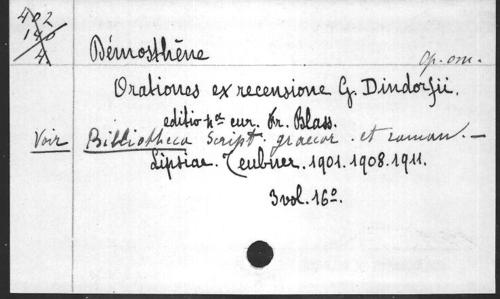 402
140
4.
Démosthène
Op. om.
Orationes ex recensione G. Dindorfii.
editio 4ᵃ cur. Fr. Blass.
Voir Bibliotheca Script. graecor. et roman. —
Lipsiae. Teubner. 1901. 1908. 1911.
3 vol. 16º.